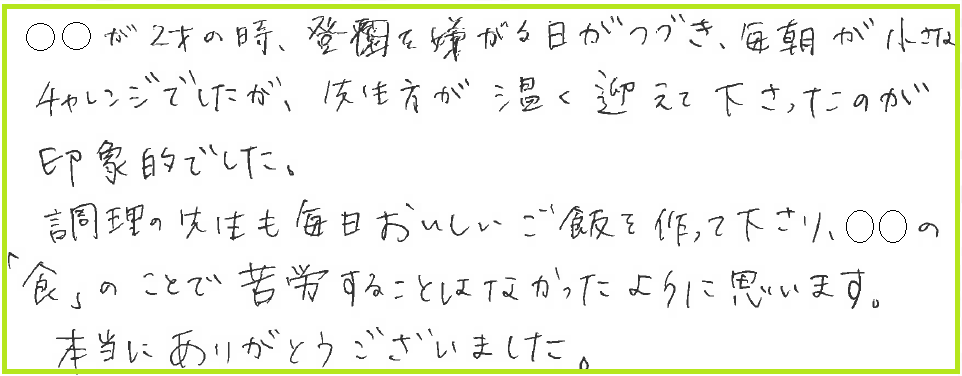 ○○が2才の時、登園を嫌がる日がつづき、毎朝が小さな
チャレンジでしたが、先生方が温く迎えて下さったのが
印象的でした。
調理の先生も毎日おいしいご飯を作って下さり、○○の
「食」のことで苦労することはなかったように思います。
本当にありがとうございました。